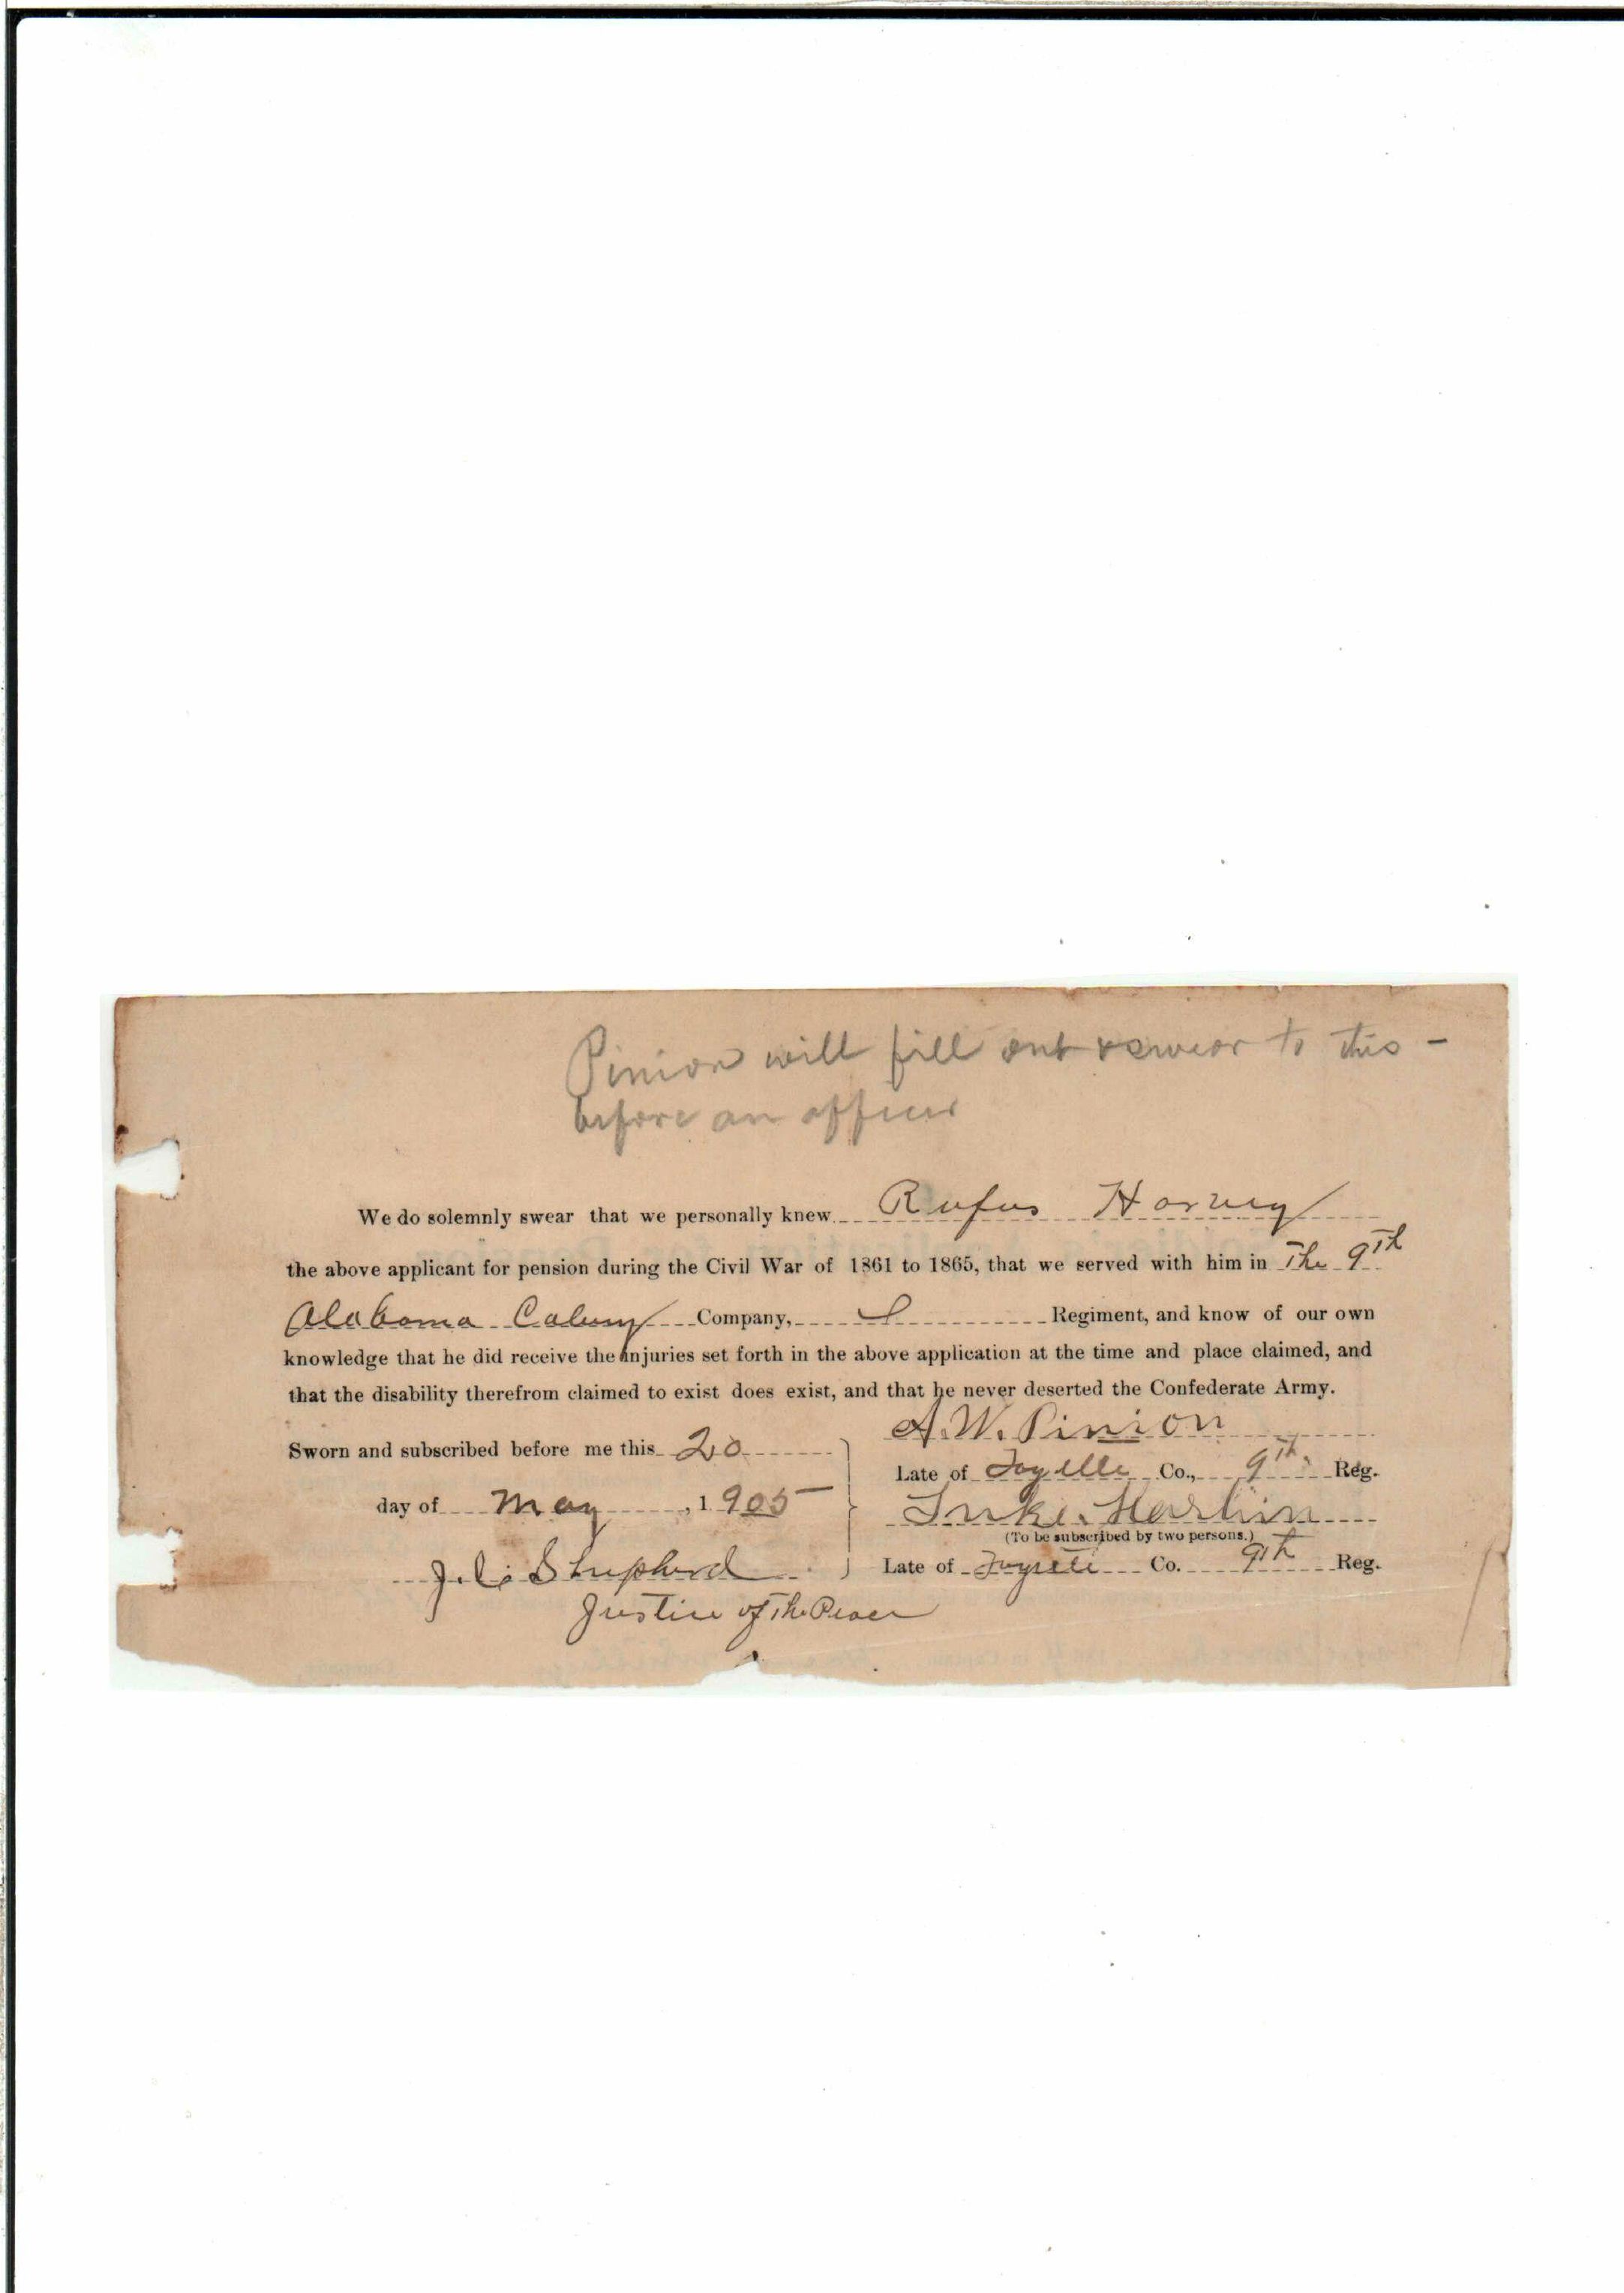 Pinion will fill out & swear to this -
before an officer
We do solemnly swear that we personally knew Rufus Harvey
the above applicant for pension during the Civil War of 1861 to 1865, that we served with him in The 9th
Alabama Calvry Company, Regiment, and know of our own
knowledge that he did receive the injuries set forth in the above application at the time and place claimed, and
that the disability therefrom claimed to exist does exist, and that he never deserted the Confederate Army.
A. W. Pinion
Sworn and subscribed before me this 20
Late of Co., 9th Reg.
day of May, 1905
Luke Harbin
(To be subscribed by two persons.)
J. C. Shepherd
Late of Co. 9th Reg.
Justice of The Peace